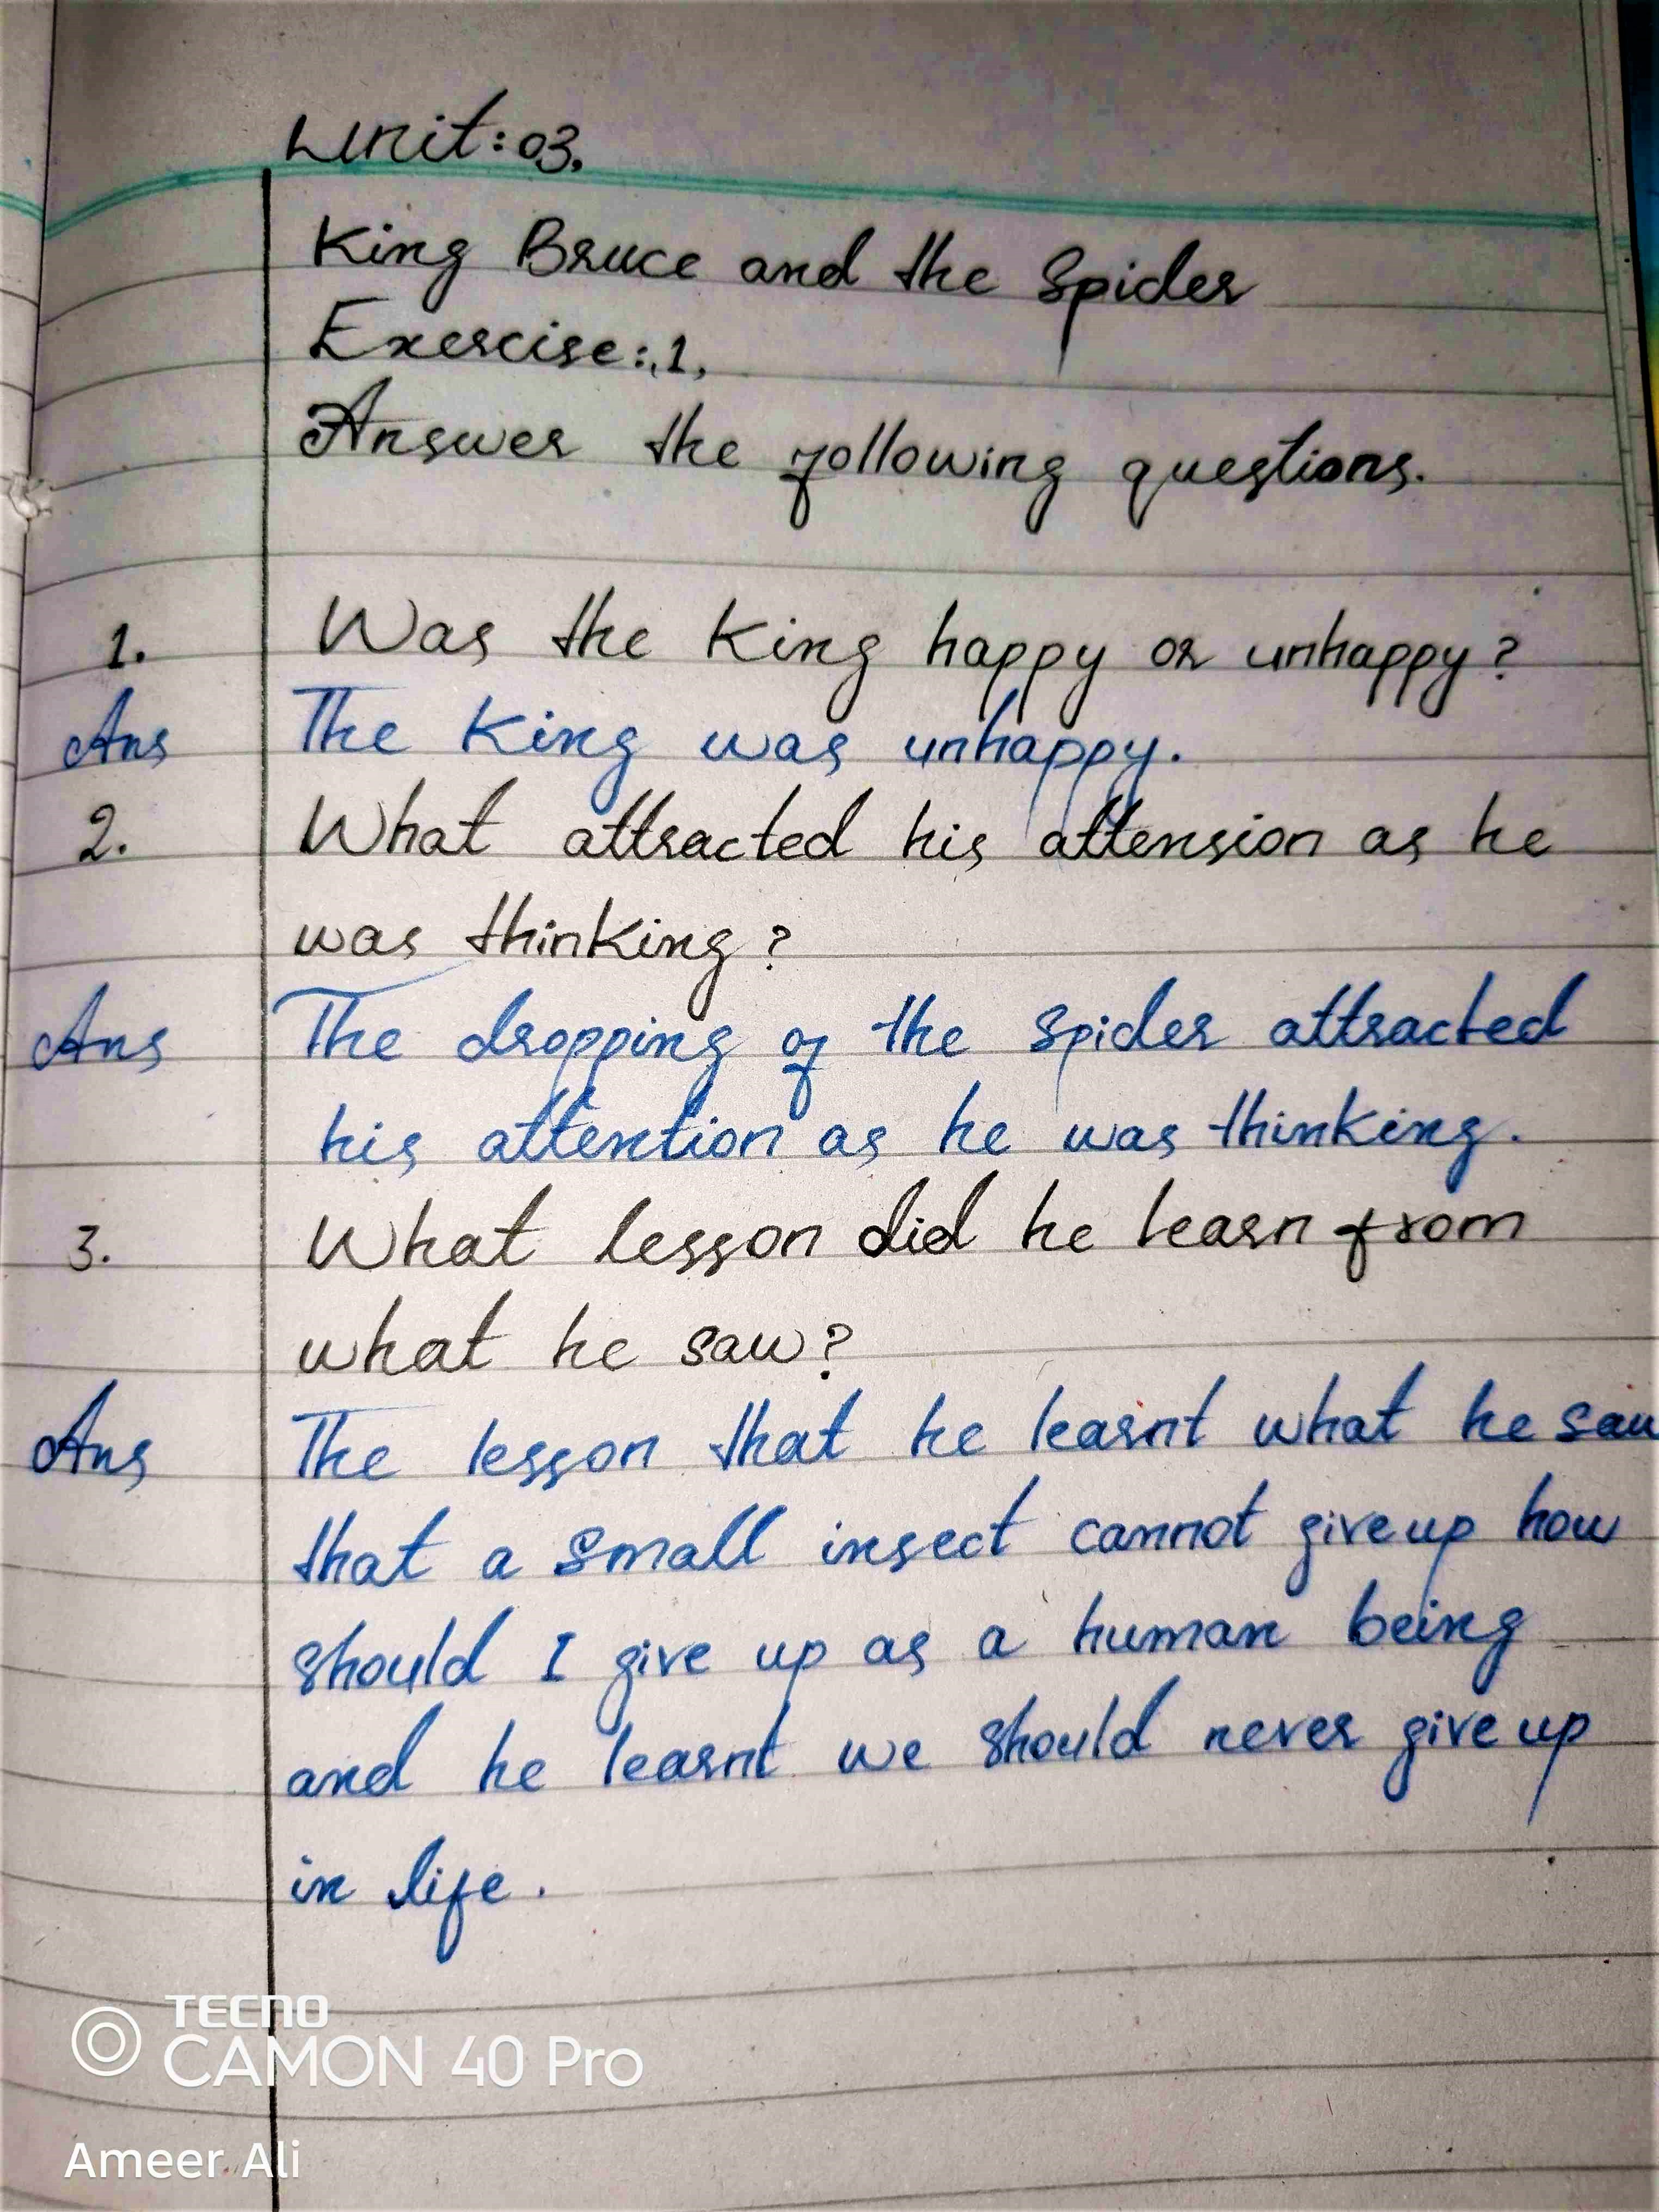 Unit:03.
King Bruce and the Spider
Exercise:,1,
Answer the following questions.
1. Was the King happy or unhappy?
Ans The King was unhappy.
2. What attracted his attension as he
was thinking?
Ans The dropping of the Spider attracted
his attention as he was thinking.
3. What lesson did he learn from
what he saw?
Ans The lesson that he learnt what he saw
that a small insect cannot giveup how
should I give up as a human being
and he learnt we should never give up
in life.
TECNO
CAMON 40 Pro
Ameer Ali